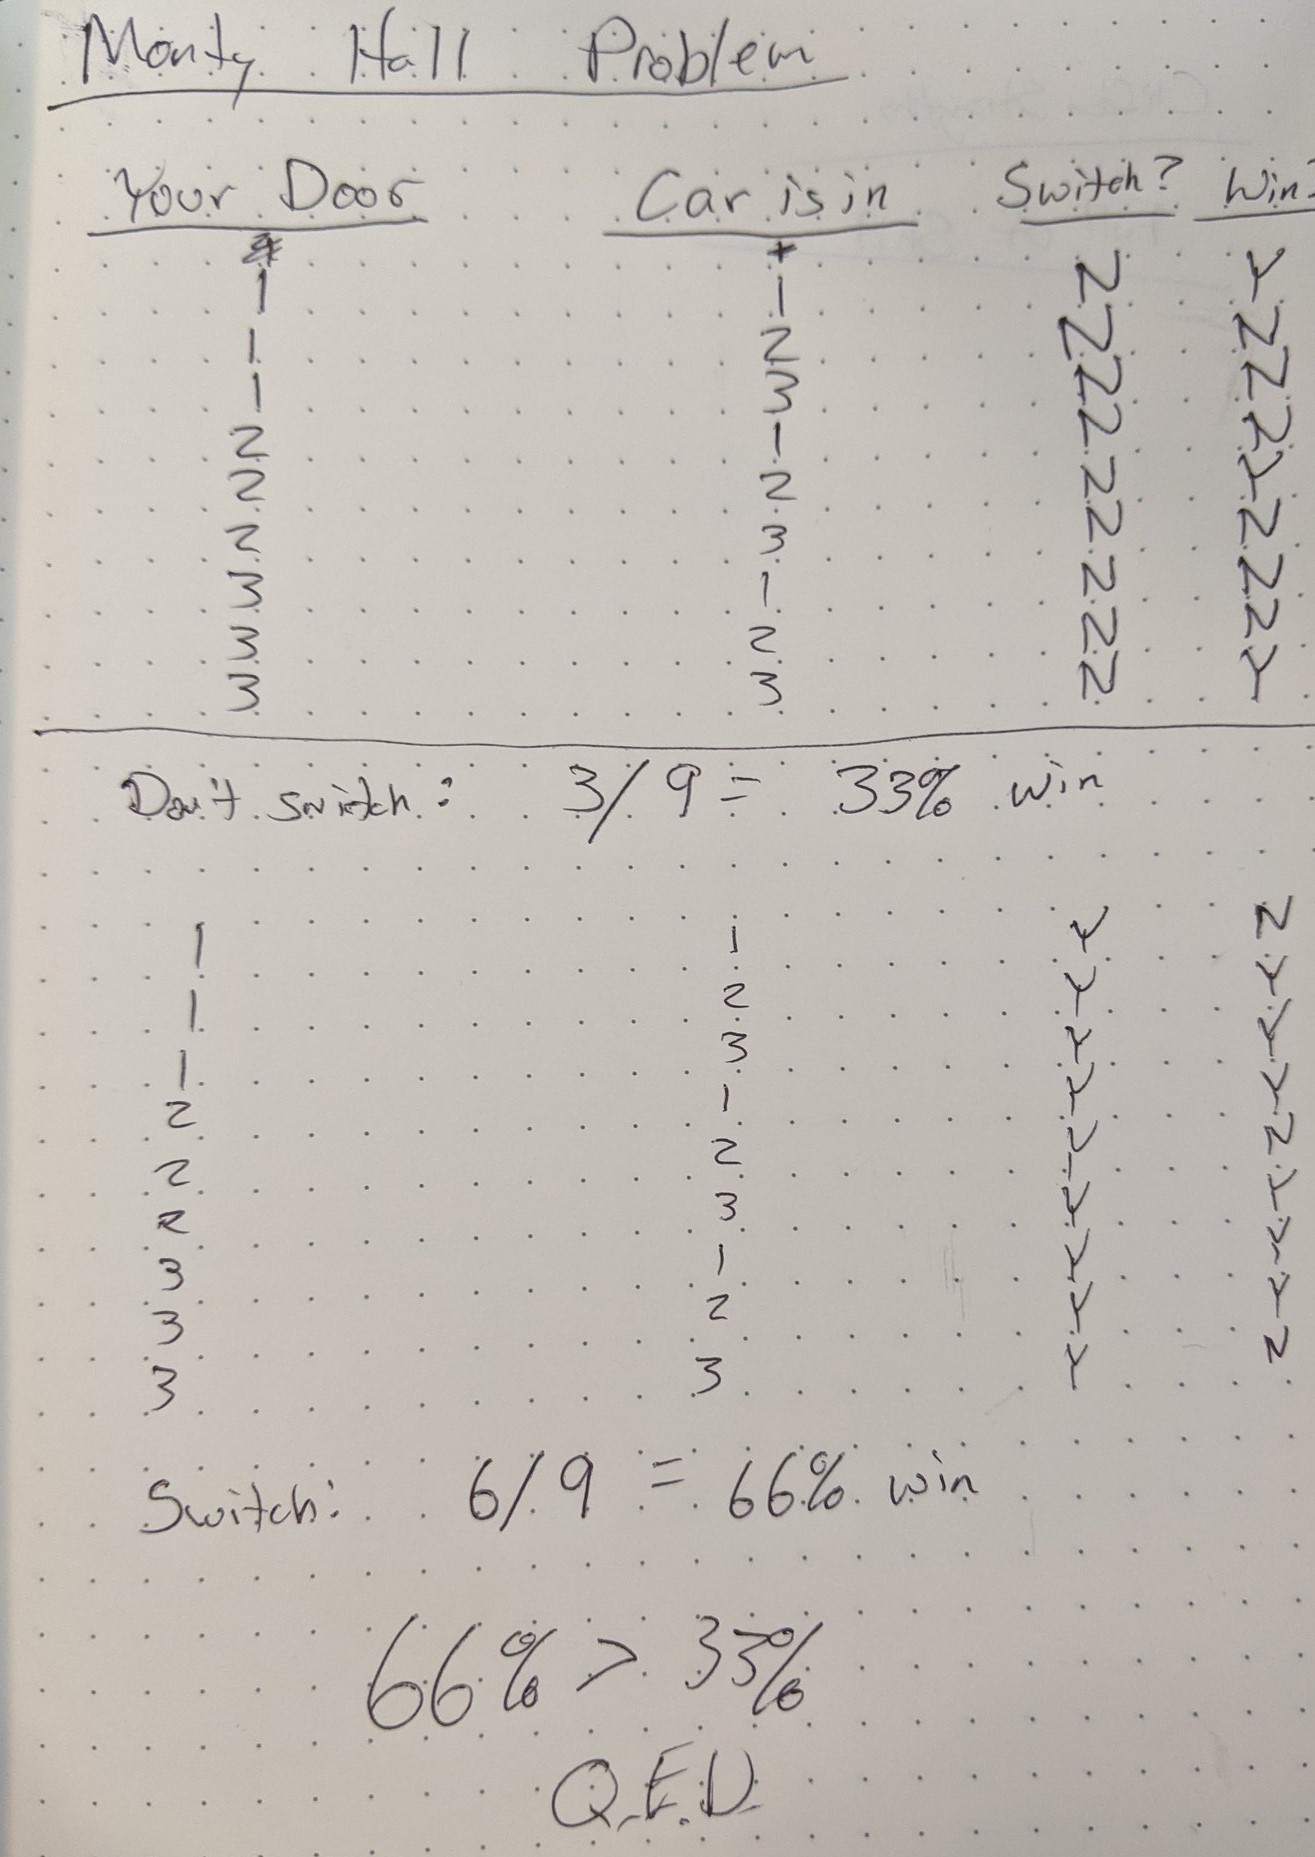 Monty Hall Problem
Your Door Car is in Switch? Win?
1 1 N Y
1 2 N N
1 3 N N
2 1 N N
2 2 N Y
2 3 N N
3 1 N N
3 2 N N
3 3 N Y
Don't switch: 3/9 = 33% win
1 1 Y N
1 2 Y Y
1 3 Y Y
2 1 Y Y
2 2 Y N
2 3 Y Y
3 1 Y Y
3 2 Y Y
3 3 Y N
Switch: 6/9 = 66% win
66% > 33%
Q.E.D.